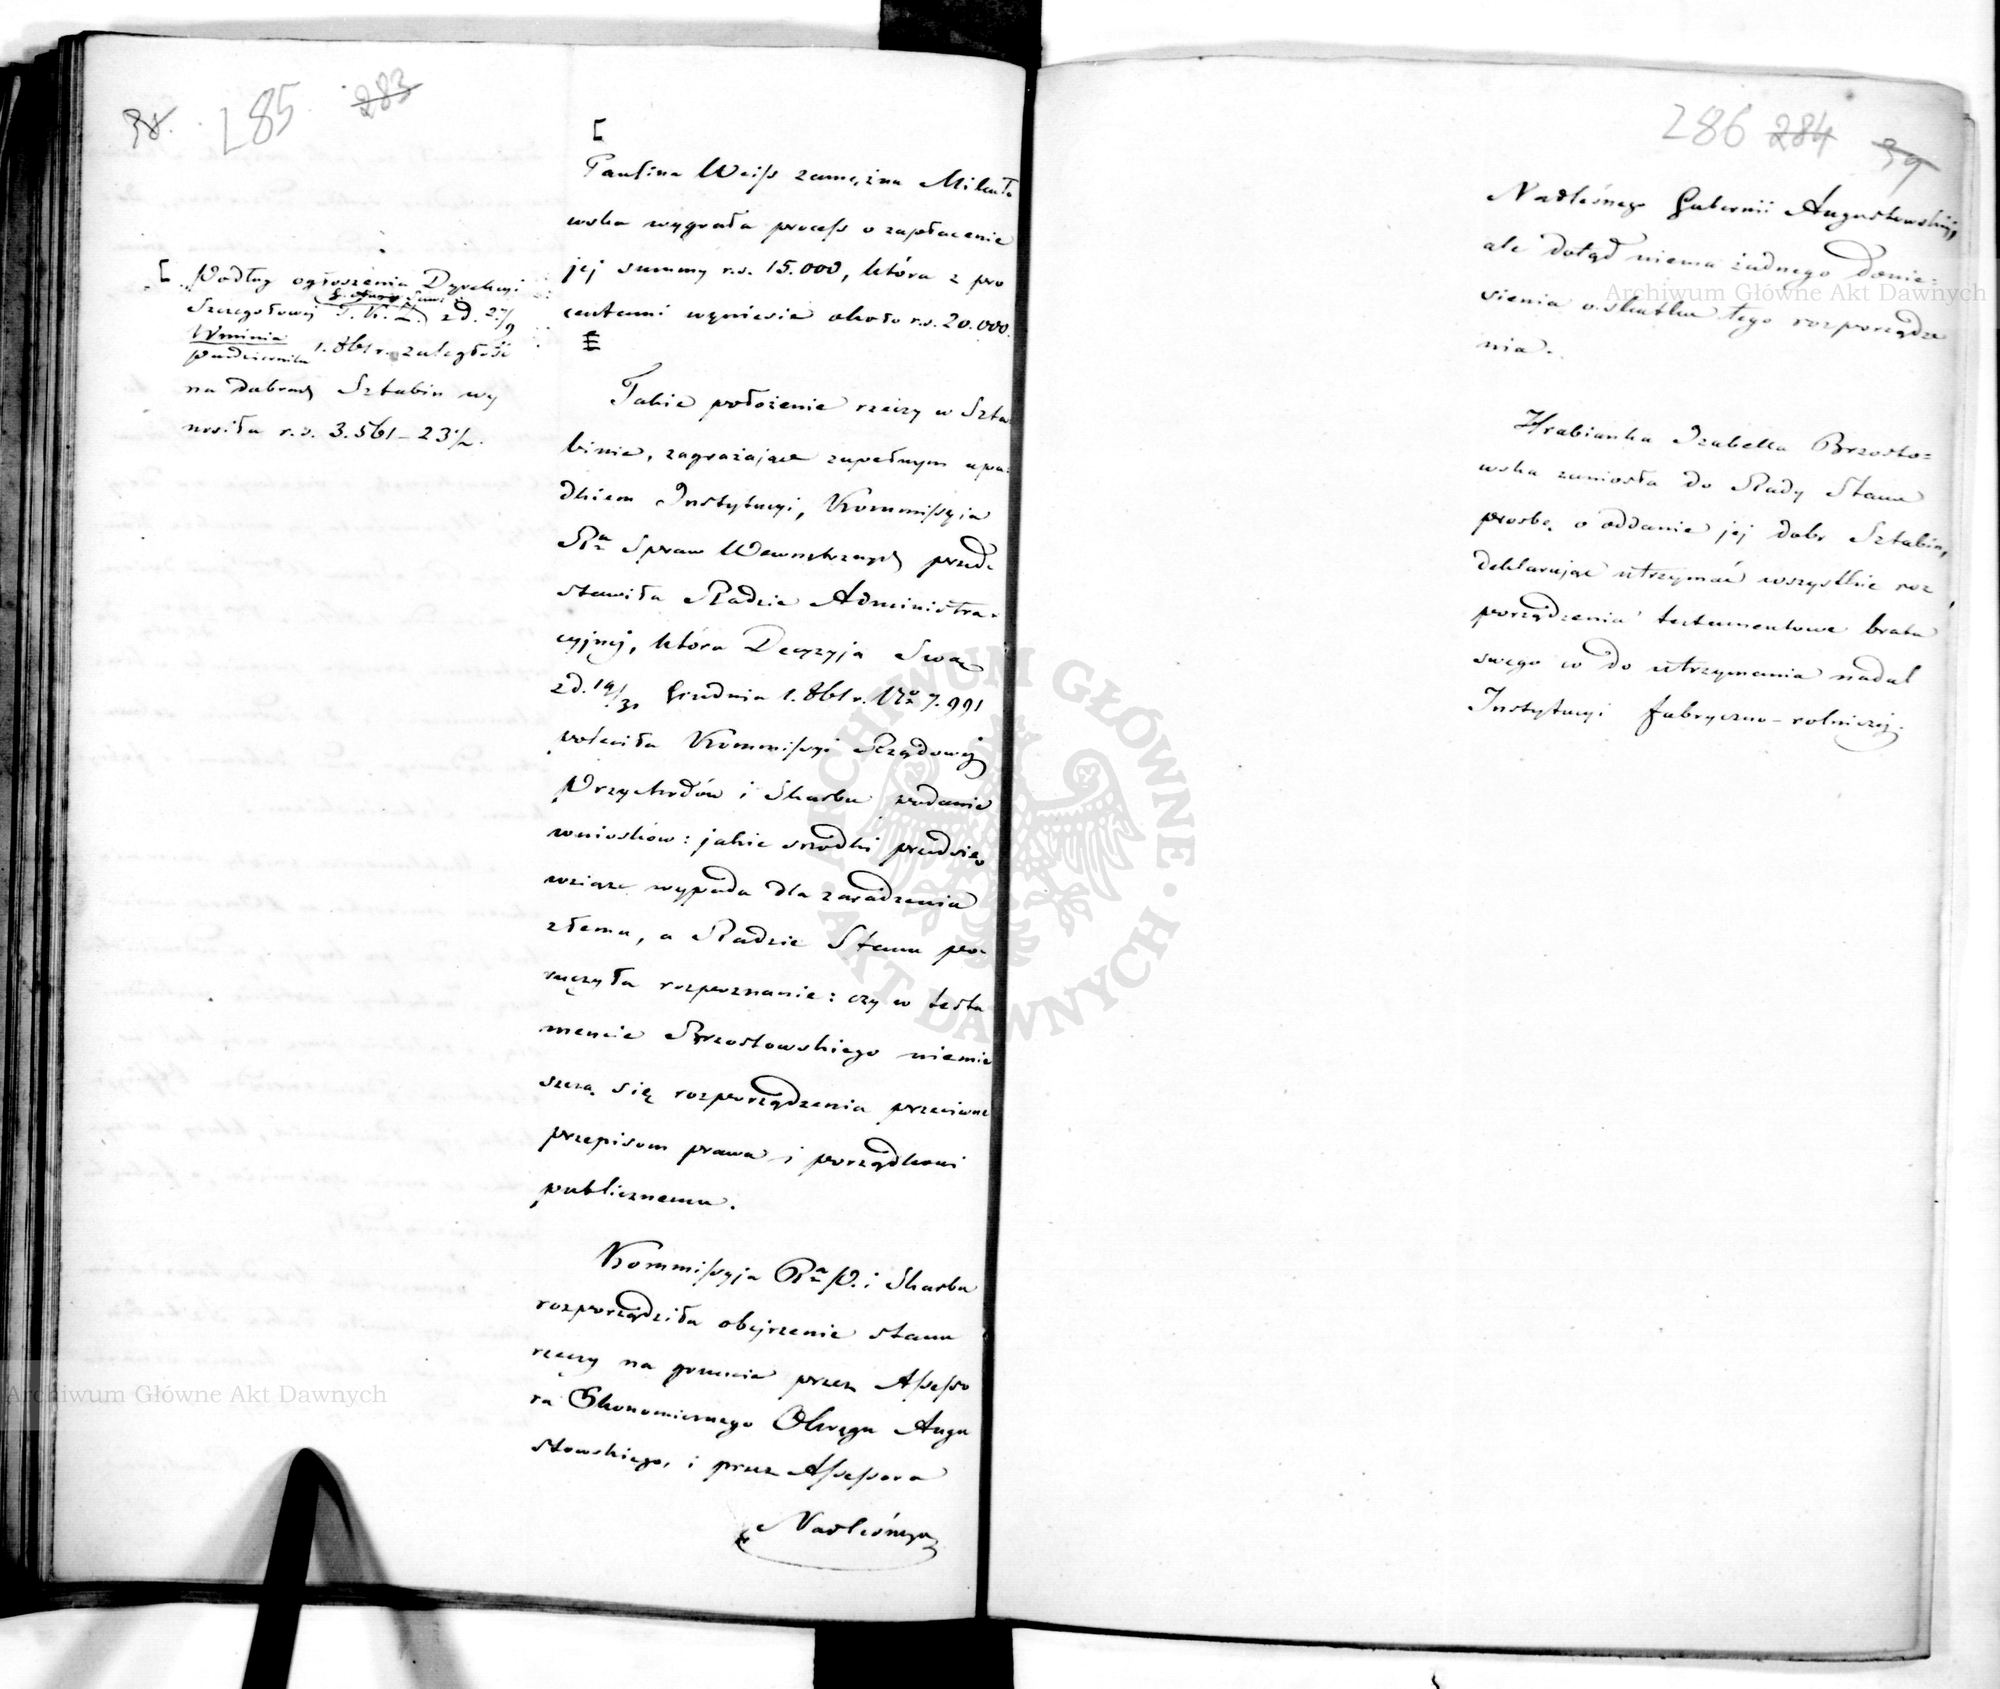 38. 285 283
[
Paulina Weiss zamężna Mikuło
wska wygrała process o zapłacenie
jej summy r.s. 15.000, która z pro
centami wyniesie około r.s. 20.000.
[ Podług ogłoszenia Dyrekcyi
Szczegółowej T. K. Z. z d. 27/9
Września
Października 1.861 r. zaległość
na dobrach Sztabin wy
nosiła r.s. 3.561 – 23½.
Takie położenie rzeczy w Szta
binie, zagrażające zupełnym upa-
dkiem Instytucyi, Kommissyja
Ra Spraw Wewnętrznych przed-
stawiła Radzie Administra-
cyjnej, która Decyzyja Swą
z d. 19/31 Grudnia 1.861 r. No 7.991
poleciła Kommissyi Rządowej
Przychodów i Skarbu podanie
wniosków: jakie srodki przedsię-
wziąść wypada dla zaradzenia
złemu, a Radzie Stanu po-
ruczyła rozpoznanie: czy w testa
mencie Brzostowskiego niemie
szczą się rozporządzenia przeciwne
przepisom prawa i porządkowi
publicznemu.
Kommissyja Ra P. i Skarbu
rozporządziła obejrzenie stanu
rzeczy na gruncie przez Assesso
ra Ekonomicznego Okręgu Augu
stowskiego, i przez Assessora
Nadleśnego
286 284 39
Nadleśnego Gubernii Augustowskiej,
ale dotąd niema żadnego donie=
sienia o skutku tego rozporządze
nia.
Hrabianka Izabella Brzosto=
wska zaniosła do Rady Stanu
prosbę o oddanie jej dobr Sztabin,
deklarując utrzymać wszystkie roz
porządzenia testamentowe brata
swego co do utrzymania nadal
Instytucyi fabryczno-rolniczej.
Archiwum Główne Akt Dawnych
Archiwum Główne Akt Dawnych
ARCHIWUM GŁÓWNE · AKT DAWNYCH ·